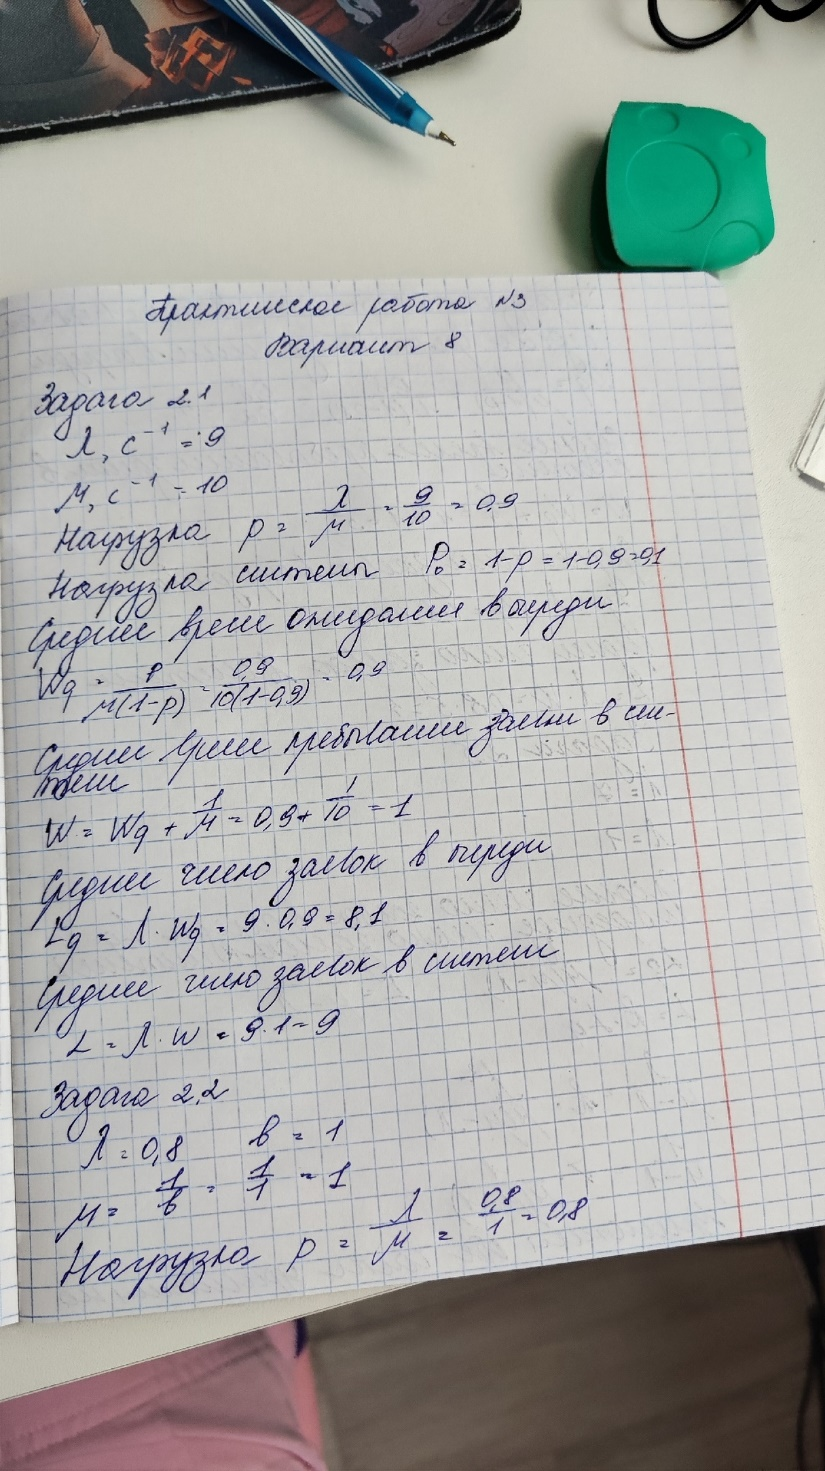 Практическое работа №3
Вариант 8
Задача 2.1
λ, с⁻¹ = 9
μ, с⁻¹ = 10
Нагрузка ρ = λ/μ = 9/10 = 0,9
Нагрузка системы P₀ = 1-ρ = 1-0,9=0,1
Среднее время ожидания в очереди
Wq = ρ/μ(1-ρ) = 0,9/10(1-0,9) = 0,9
Среднее время пребывание заявки в сис-
теме
W = Wq + 1/μ = 0,9 + 1/10 = 1
Среднее число заявок в очереди
Lq = λ · Wq = 9 · 0,9 = 8,1
Среднее число заявок в системе
L = λ · W = 9 · 1 = 9
Задача 2.2
λ = 0,8 b = 1
μ = 1/b = 1/1 = 1
Нагрузка ρ = λ/μ = 0,8/1 = 0,8